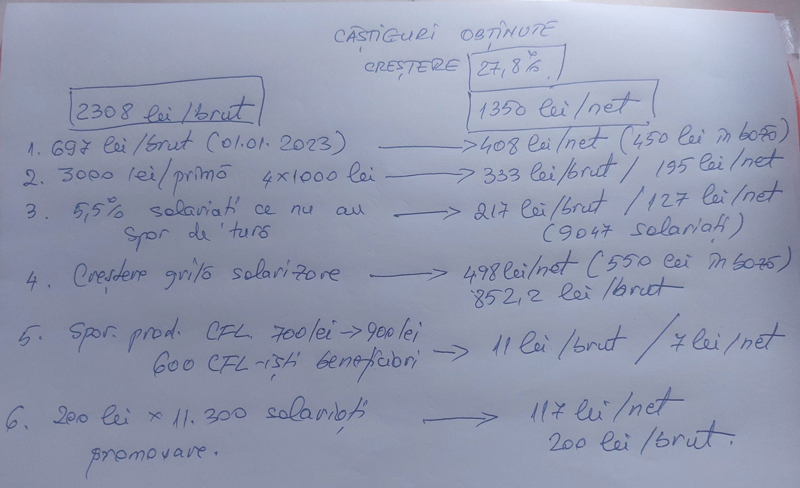 CÂȘTIGURI OBȚINUTE
CREȘTERE 27,8%
2308 lei/brut 1350 lei/net
1. 697 lei/brut (01.01.2023) → 408 lei/net (450 lei în bază)
2. 3000 lei/primă 4x1000 lei → 333 lei/brut / 195 lei/net
3. 5,5% salariați ce nu au → 217 lei/brut / 127 lei/net
spor de tură (9047 salariați)
4. Creștere grilă salarizare → 498 lei/net (550 lei în bază)
852,2 lei/brut
5. Spor. prod. CFL 700 lei → 900 lei → 11 lei/brut / 7 lei/net
600 CFL-iști beneficiari
6. 200 lei x 11.300 salariați → 117 lei/net
promovare. 200 lei/brut.